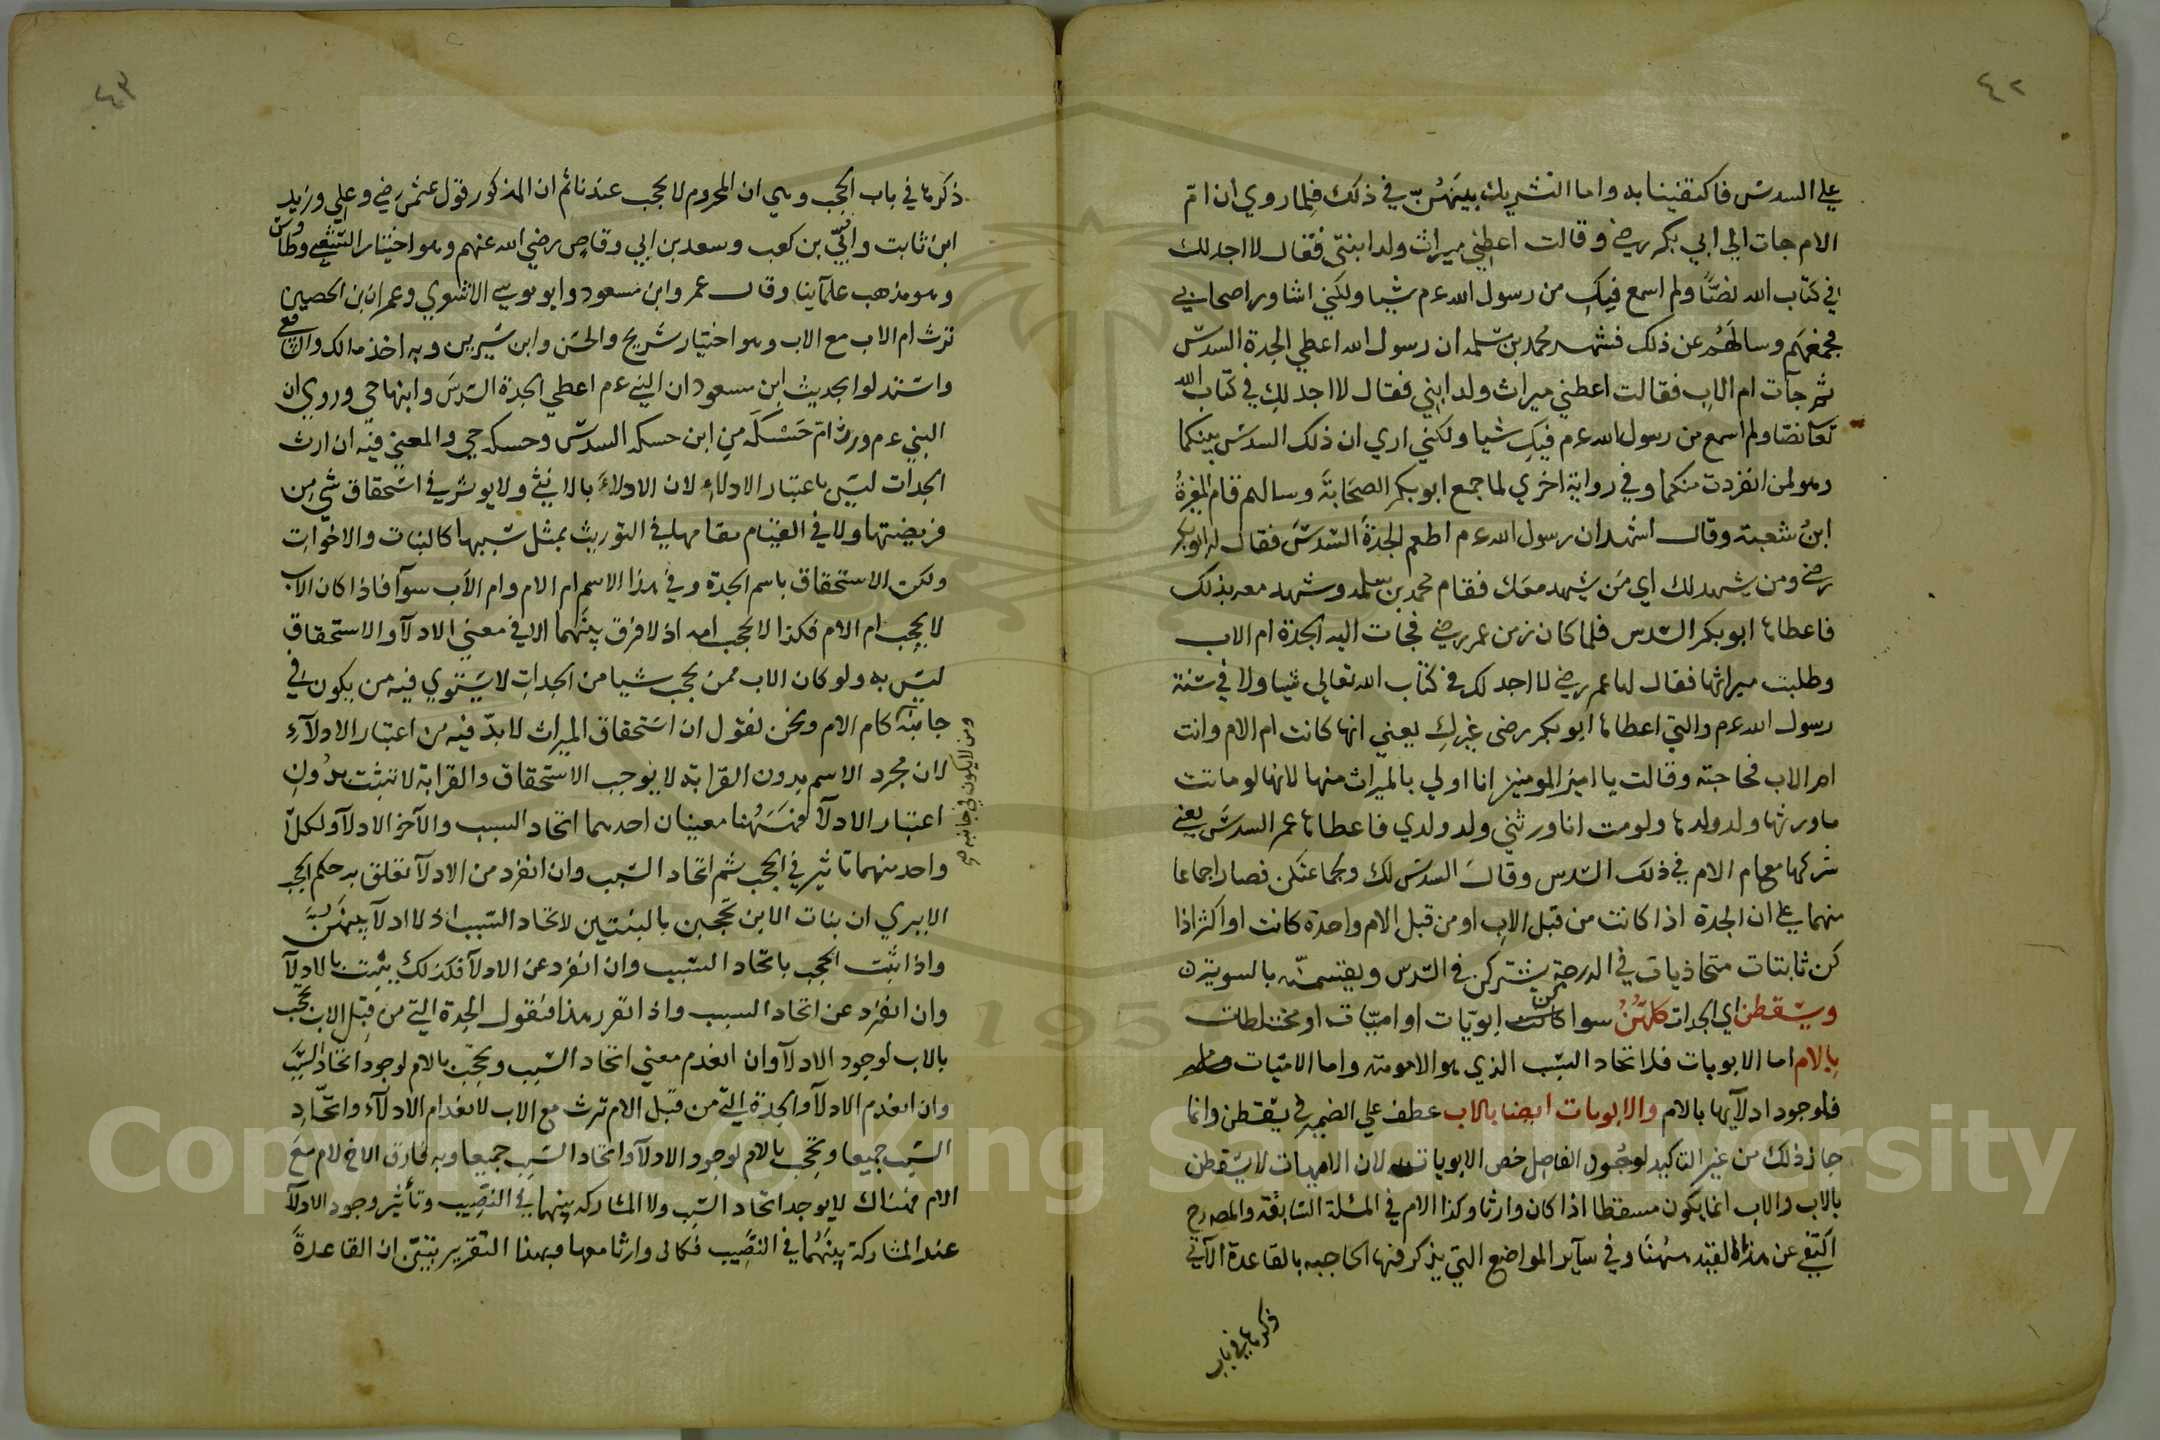 ٤٢
علي السدس فاكتفينا به واما التشريك بينهن في ذلك فلما روي ان ام
الام جات الي ابي بكر رضي وقالت اعطني ميراث ولد ابنتي فقال لا اجد لك
في كتاب الله نصا ولم اسمع فيك من رسول الله عم شيا ولكني اشاور اصحابي
فجمعهم وسالهم عن ذلك فشهد محمد بن سلمه ان رسول الله اعطي الجدة السدس
ثم جآت ام الاب فقالت اعطني ميراث ولد ابني فقال لا اجد لك في كتاب الله
تعآ نصا ولم اسمع من رسول الله عم فيك شيا ولكني اري ان ذلك السدس بينكما
وهو لمن انفردت منكما وفي رواية اخري لما جمع ابو بكر الصحابة وسالهم قام المغيرة
ابن شعبة وقال اشهد ان رسول الله عم اطعم الجدة السدس فقال له ابو بكر
رضي ومن يشهد لك اي من يشهد معك فقام محمد بن سلمه وشهد معه بذلك
فاعطاها ابو بكر السدس فلما كان زمن عمر رضي فجات اليه الجدة ام الاب
وطلبت ميراثها فقال لها عمر رضي لا اجد لك في كتاب الله تعالي شيا ولا في سنة
رسول الله عم والتي اعطاها ابو بكر رضي غيرك يعني انها كانت ام الام وانت
ام الاب فحاجته وقالت يا امير المومنين انا اولي بالميراث منها لانها لو ماتت
ما ورثها ولد ولدها ولو مت انا ورثني ولد ولدي فاعطاها عمر السدس يعني
شركها مع ام الام في ذلك السدس وقال السدس لك وكما عنكن فصار اجماعا
منهما علي ان الجدة اذا كانت من قبل الاب او من قبل الام واحدة كانت او اكثر اذا
كن ثابتات متحاذيات في الدرجة يشتركن في السدس ويقتسمنه بالسوية
ويسقطن اي الجدات كلهن سوا كن ابويات او اميات او مختلطات
بالام اما الابويات فلاتحاد السبب الذي هو الامومة واما الاميات
فلوجود ادلآيها بالام والابويات ايضا بالاب عطف علي الضمير في يسقطن وانما
جاز ذلك من غير التاكيد لوجود الفاصل خص الابويات لان الاميات لا يسقطن
بالاب والاب انما يكون مسقطا اذا كان وارثا وكذا الام في المسئلة السابقة والمص رح
اكتفي عن هذا القيد ههنا وفي سآير المواضع التي يذكر فيها الحاجبه بالقاعدة الآتي
ذكرها في باب
٤٣
ذكرها في باب الحجب وهي ان المحروم لا يحجب عندنا ثم ان المذكور قول عثمن رضي وعلي وزيد
ابن ثابت وابي بن كعب وسعد بن ابي وقاص رضي الله عنهم وهو اختيار الشعبي وطاوس
وهو مذهب علمآينا وقال عمر وابن مسعود وابو موسي الاشعري وعمران بن الحصين
ترث ام الاب مع الاب وهو اختيار شريح والحسن وابن سيرين وبه اخذ مالك والشافعي
واستدلوا بحديث ابن مسعود ان النبي عم اعطي الجدة السدس وابنها حي وروي ان
النبي عم ورث ام حسكه من ابن حسكه السدس وحسكه حي والمعني فيه ان ارث
الجدات ليس باعتبار الادلاء لان الادلاء بالانثي ولا يوثر في استحقاق شي من
فريضتها ولا في القيام مقامها في التوريث بمثل سببها كالبنات والاخوات
ولكن الاستحقاق باسم الجدة وفي هذا الاسم ام الام وام الاب سوآ فاذا كان الاب
لا يحجب ام الام فكذا لا يحجب امه اذ لا فرق بينهما الا في معني الادلآ والاستحقاق
ليس به ولو كان الاب ممن يحجب شيا من الجدات لا يستوي فيه من يكون في
جانبه كام الام ونحن نقول ان استحقاق الميراث لا بد فيه من اعتبار الادلآء
لان مجرد الاسم بدون القرابة لا يوجب الاستحقاق والقرابة لا تثبت بدون
اعتبار الادلآ فههنا معنيان احدهما اتحاد السبب والآخر الادلآ ولكل
واحد منهما تاثير في الحجب ثم اتحاد السبب وان انفرد من الادلآ تعلق به حكم الحجب
الا يري ان بنات الابن تحجبن بالبنتين لاتحاد السبب اذ لا ادلآ بينهن
واذا ثبت الحجب باتحاد السبب وان انفرد عن الادلآ فكذلك يثبت بالادلآ
وان انفرد عن اتحاد السبب واذا تقرر هذا فنقول الجدة التي من قبل الاب تحجب
بالاب لوجود الادلآ وان انعدم معني اتحاد السبب وتحجب بالام لوجود اتحاد السبب
وان انعدم الادلآ والجدة التي من قبل الام ترث مع الاب لانعدام الادلآء واتحاد
السبب جميعا وتحجب بالام لوجود الادلآ واتحاد السبب جميعا وبه فارق الاخ لام مع
الام فهناك لا يوجد اتحاد السبب ولا المشاركه بينهما في النصيب وتأثير وجود الادلآ
عند المشاركة بينهما في النصيب فكان وارثا معها وبهذا التقرير تبين ان القاعدة
ومن لا يكون في جانبه صح
1957
Copyright © King Saud University